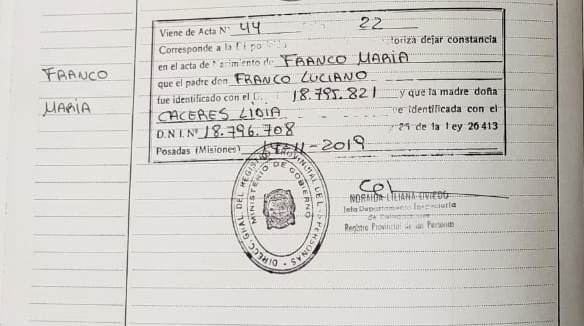 FRANCO
MARÍA
Viene de Acta N° 44 22
Corresponde a la toriza dejar constancia
en el acta de Nacimiento de FRANCO MARÍA
que el padre don FRANCO LUCIANO
fue identificado con el 18.795.821 y que la madre doña
CACERES LIDIA se identificada con el
D.N.I. N° 18.796.708 25 de la Ley 26413
Posadas (Misiones) -11-2019
DIRECC. GRAL. DEL REGISTRO PROVINCIAL DE LAS PERSONAS
MINISTERIO DE GOBIERNO
NORMDA LILIANA OVIEDO
Jefa Departamento
Registro Provincial de las Personas